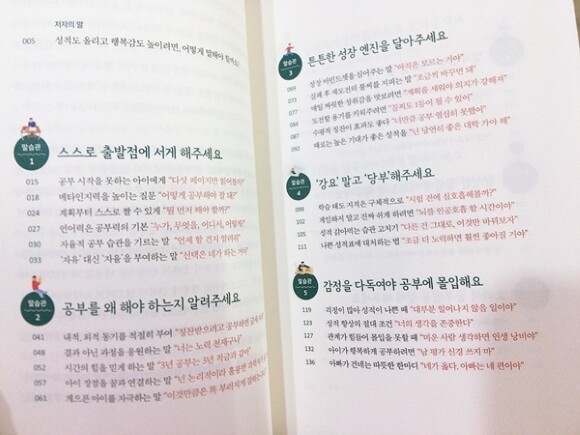 저자의 말
005 성적도 올리고 행복감도 높이려면, 어떻게 말해야 할까요?
말습관
1
스스로 출발점에 서게 해주세요
015 공부 시작을 못하는 아이에게 "다섯 페이지만 읽어볼까?"
018 메타인지력을 높이는 질문 "어떻게 공부해야 잘 돼?"
024 계획부터 스스로 할 수 있게 "뭘 먼저 해야 할까?"
027 언어력은 공부력의 기본 "누가, 무엇을, 어디서, 어떻게"
030 자율적 공부 습관을 기르는 말 "언제 할 건지 알려줘"
033 '자유' 대신 '자율'을 부여하는 말 "선택은 네가 하는 거야"
말습관
2
공부를 왜 해야 하는지 알려주세요
041 내적, 외적 동기를 적절히 부여 "칭찬받으려고 공부하면 금세
048 결과 아닌 과정을 응원하는 말 "너는 노력 천재구나"
052 시간의 힘을 믿게 하는 말 "3년 공부는 3년 적금과 같아"
057 아이 장점을 꿈과 연결하는 말 "넌 논리적이라 훌륭한
061 게으른 아이를 자극하는 말 "이것만큼은 똑 부러지게
말습관
3
튼튼한 성장 엔진을 달아주세요
069 성장 마인드셋을 심어주는 말 "아직은 모르는 거야"
073 실패 후 재도전의 불씨를 지피는 말 "조금씩 바꾸면 돼"
077 매일 짜릿한 성취감을 맛보려면 "계획을 세워야 의지가 강해져"
082 도전할 용기를 키워주려면 "꼴찌도 1등이 될 수 있어"
087 수평적 칭찬이 효과도 좋다 "너만큼 공부 열심히 못했어"
092 때로는 높은 기대가 좋은 성적을 "넌 당연히 좋은 대학 가야 해"
말습관
4
'강요' 말고 '당부'해주세요
099 학습 태도 지적은 구체적으로 "시험 전에 심호흡해볼까?"
102 게임하지 말고 진짜 쉬게 하려면 "뇌를 인공호흡할 시간이야"
105 성적 갉아먹는 습관 고치기 "다른 건 그대로, 이것만 바꿔보자"
111 나쁜 성적표에 대처하는 법 "조금 더 노력하면 훨씬 좋아질 거야"
말습관
5
감정을 다독여야 공부에 몰입해요
119 걱정이 많아 성적이 나쁜 때 "대부분 일어나지 않을 일이야"
123 성적 향상의 절대 조건 "너의 생각을 존중한다"
127 관계가 힘들어 몰입을 못할 때 "미운 사람 생각하면 인생 낭비야"
132 아이가 행복하게 공부하려면 "남 평가 신경 쓰지 마"
136 아빠가 건네는 따뜻한 한마디 "네가 옳다. 아빠는 네 편이야"